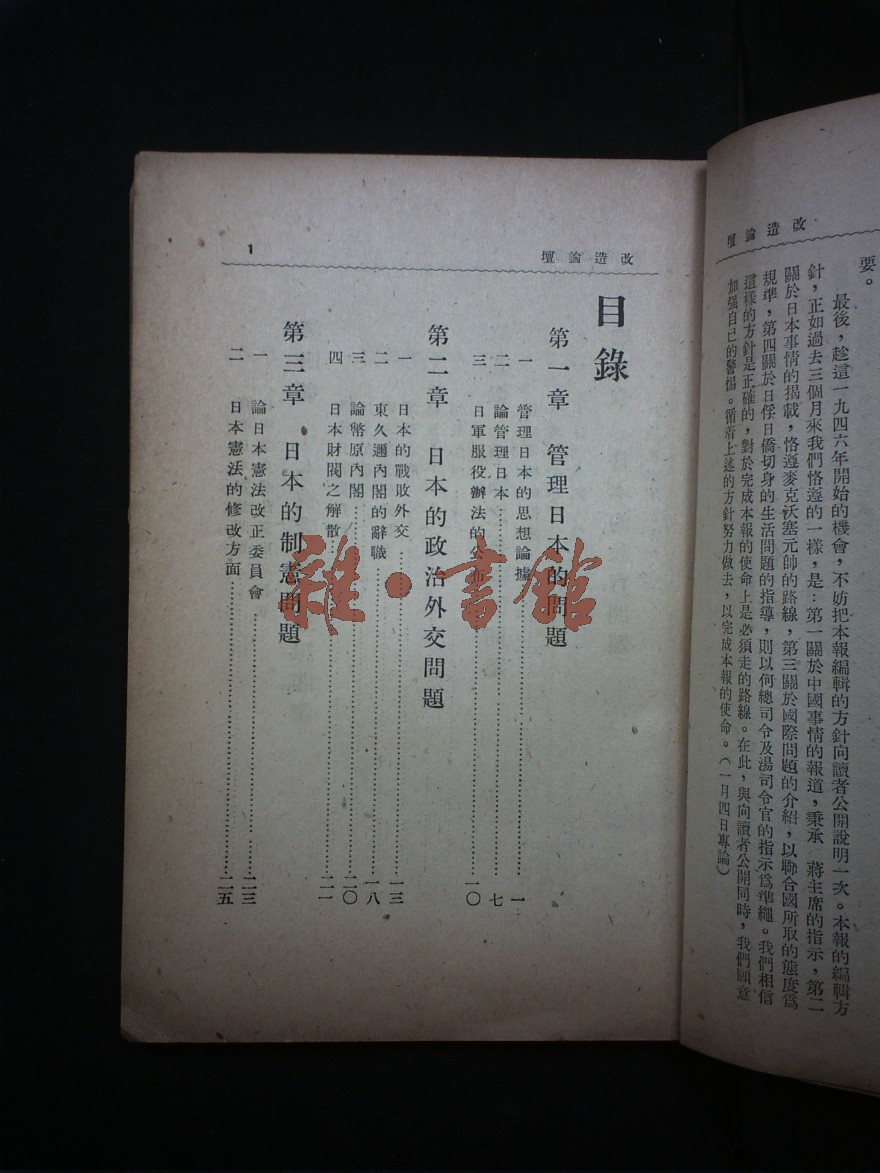 改造論壇
要。
最後，趁這一九四六年開始的機會，不妨把本報編輯的方針向讀者公開說明一次。本報的編輯方
針，正如過去三個月來我們恪遵的一樣，是：第一關於中國事情的報道，秉承　蔣主席的指示，第二
關於日本事情的揭載，恪遵麥克沃塞元帥的路線，第三關於國際問題的介紹，以聯合國所取的態度爲
規準，第四關於日俘日僑切身的生活問題的指導，則以何總司令及湯司令官的指示爲準繩。我們相信
這樣的方針是正確的，對於完成本報的使命上是必須走的路線。在此，與向讀者公開同時，我們願意
加强自己的警惕。循着上述的方針努力做去，以完成本報的使命。（一月四日專論）
改造論壇
1
目錄
第一章　管理日本的問題
一　管理日本的思想論據……一
二　論管理日本……七
三　日軍服役辦法的公布……一〇
第二章　日本的政治外交問題
一　日本的戰敗外交……一三
二　東久邇內閣的辭職……一八
三　論幣原內閣……二〇
四　日本財閥之解散……二一
第三章　日本的制憲問題
一　論日本憲法改正委員會……二三
二　日本憲法的修改方面……二五
雜·書館